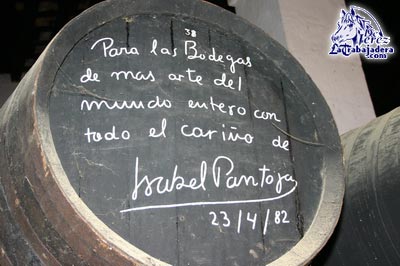 38
Para las Bodegas
de mas arte del
mundo entero con
todo el cariño de
Isabel Pantoja
23/4/82
Jerez
LaTrabajadera
.com